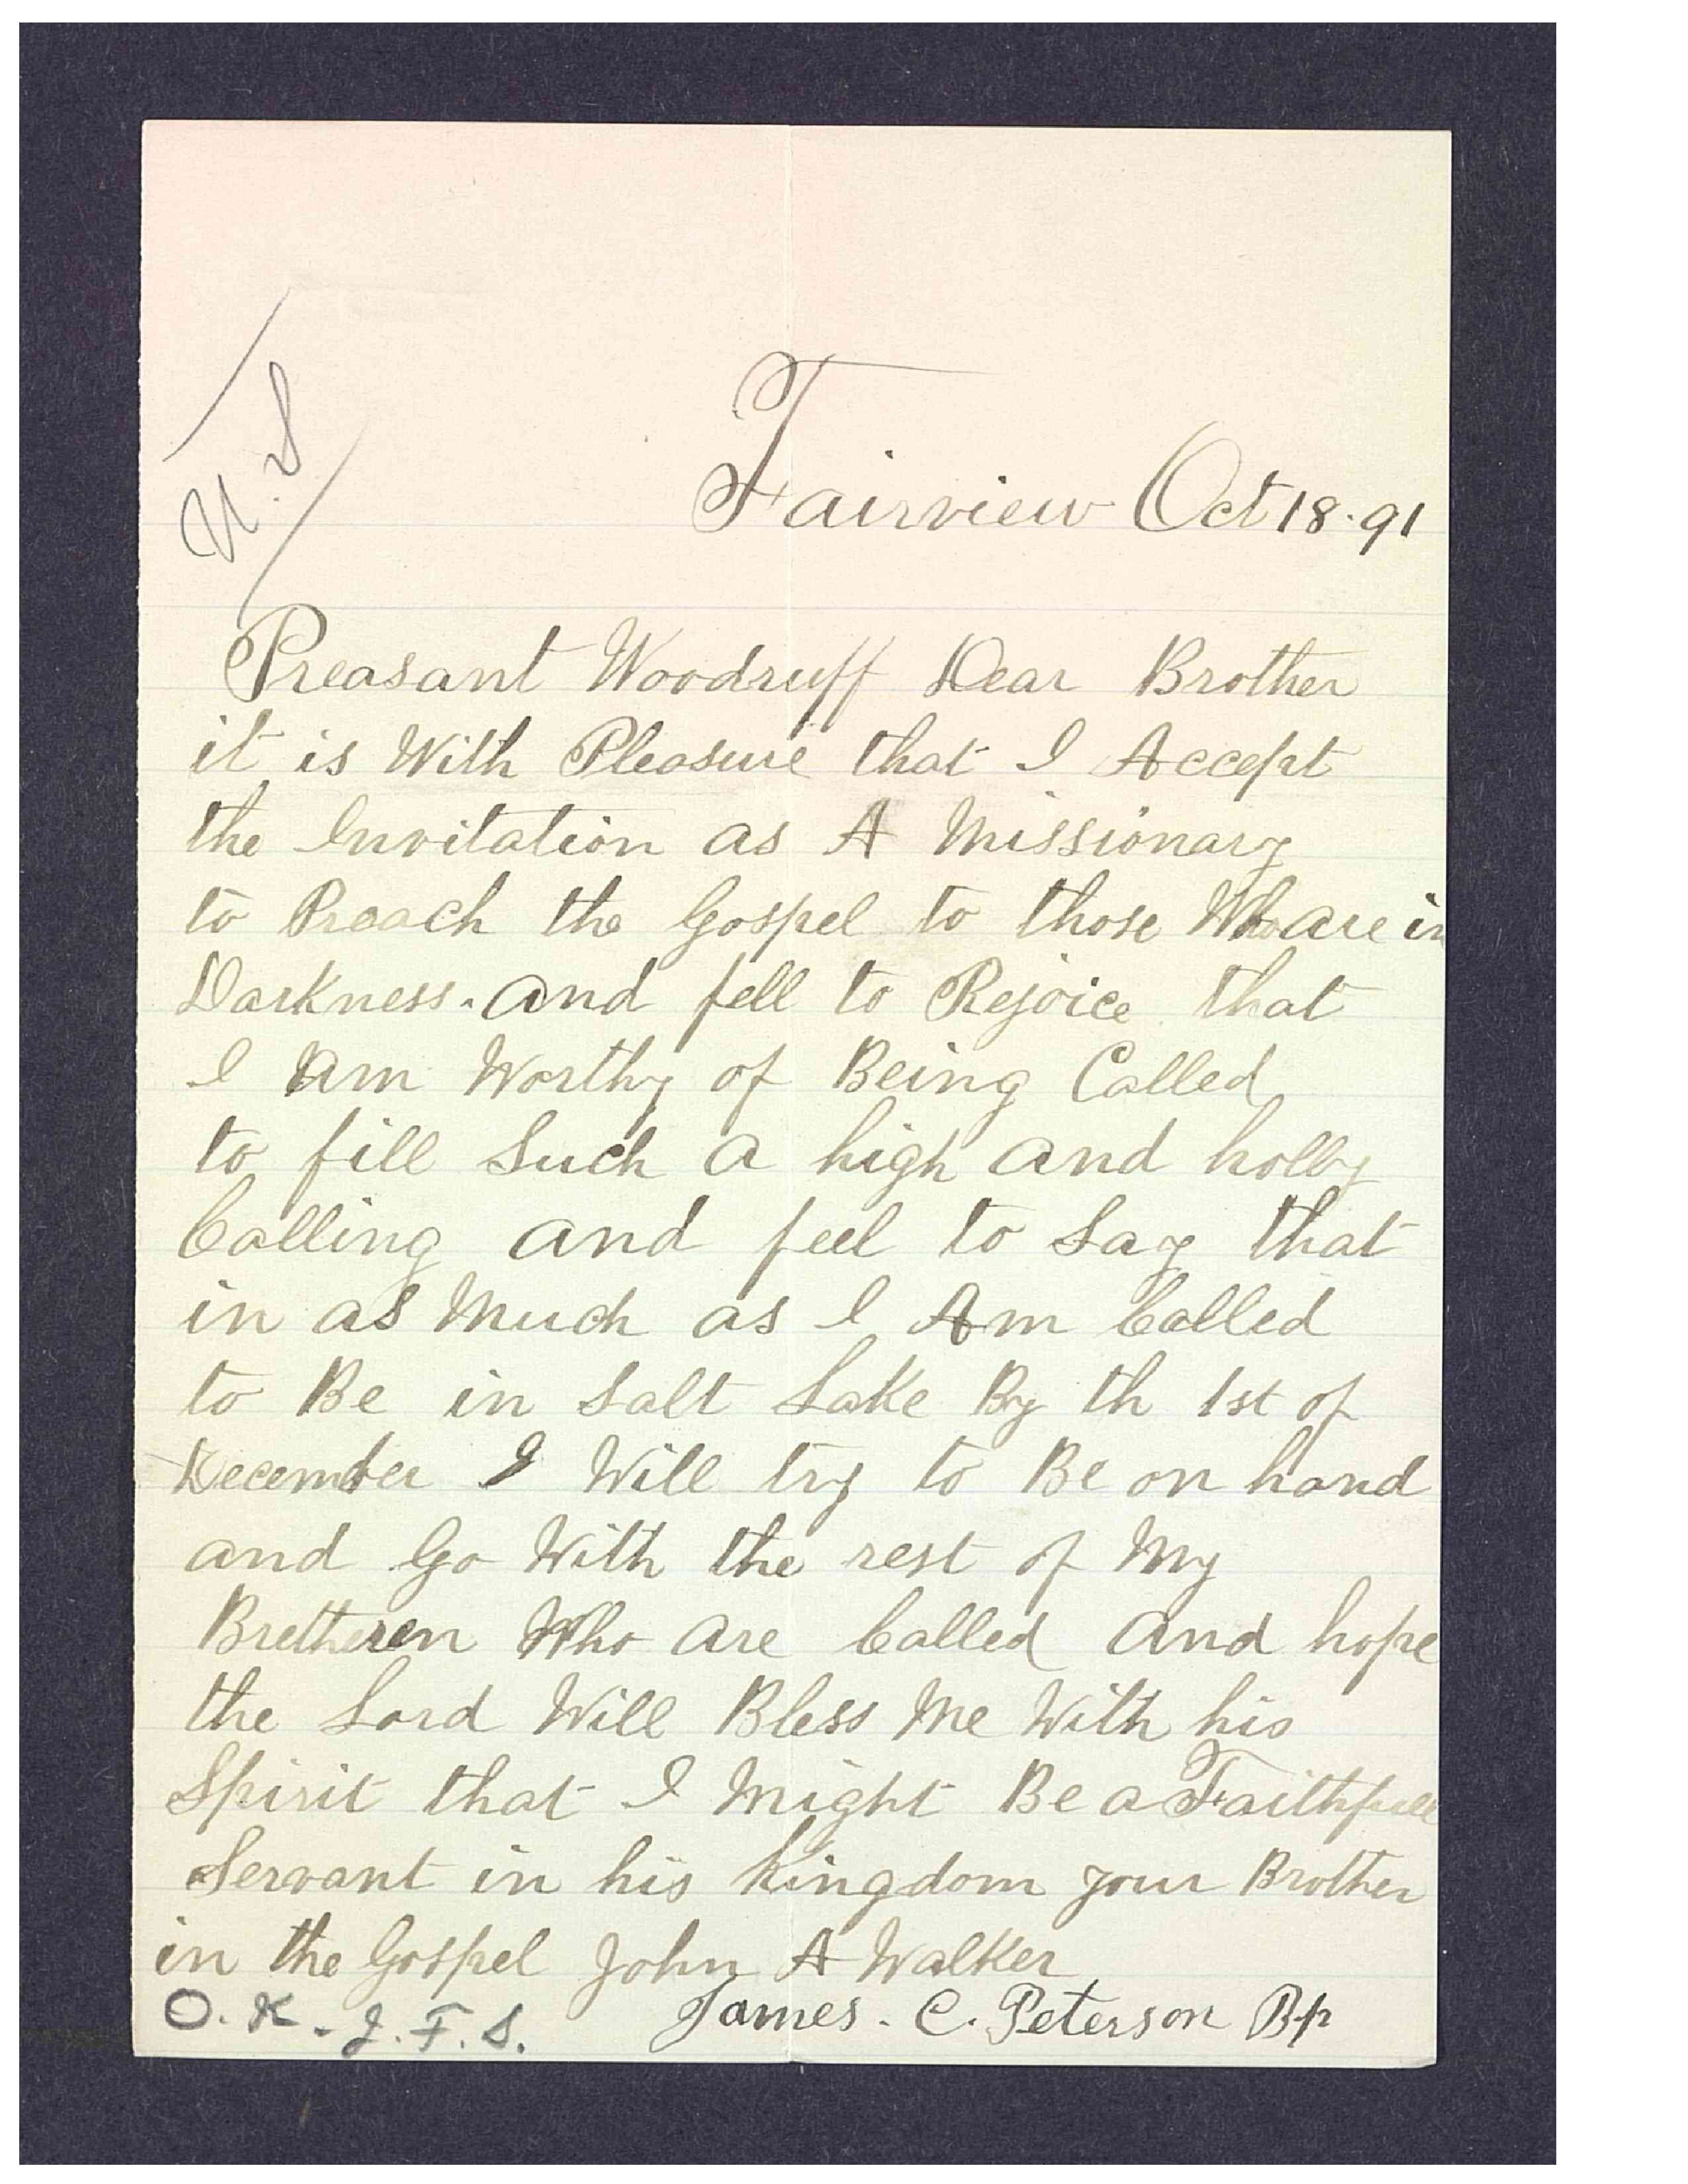 U.S
Fairview Oct 18. 91
Preasant Woodruff Dear Brother
it is With Pleasure that I Accept
the Invitation as A Missionary
to Preach the Gospel to those Who are in
Darkness. and fell to Rejoice that
I am Worthy of Being Called
to fill Such a high and holly
Calling and feel to Say that
in as Much as I Am Called
to Be in Salt Lake By th 1st of
December I Will try to Be on hand
and Go With the rest of My
Bretheren Who are Called and hope
the Lord Will Bless Me With his
Spirit that I Might Be a Faithfull
Servant in his Kingdom your Brother
in the Gospel John A Walker
James. C. Peterson Bp
O. K. J. F. S.